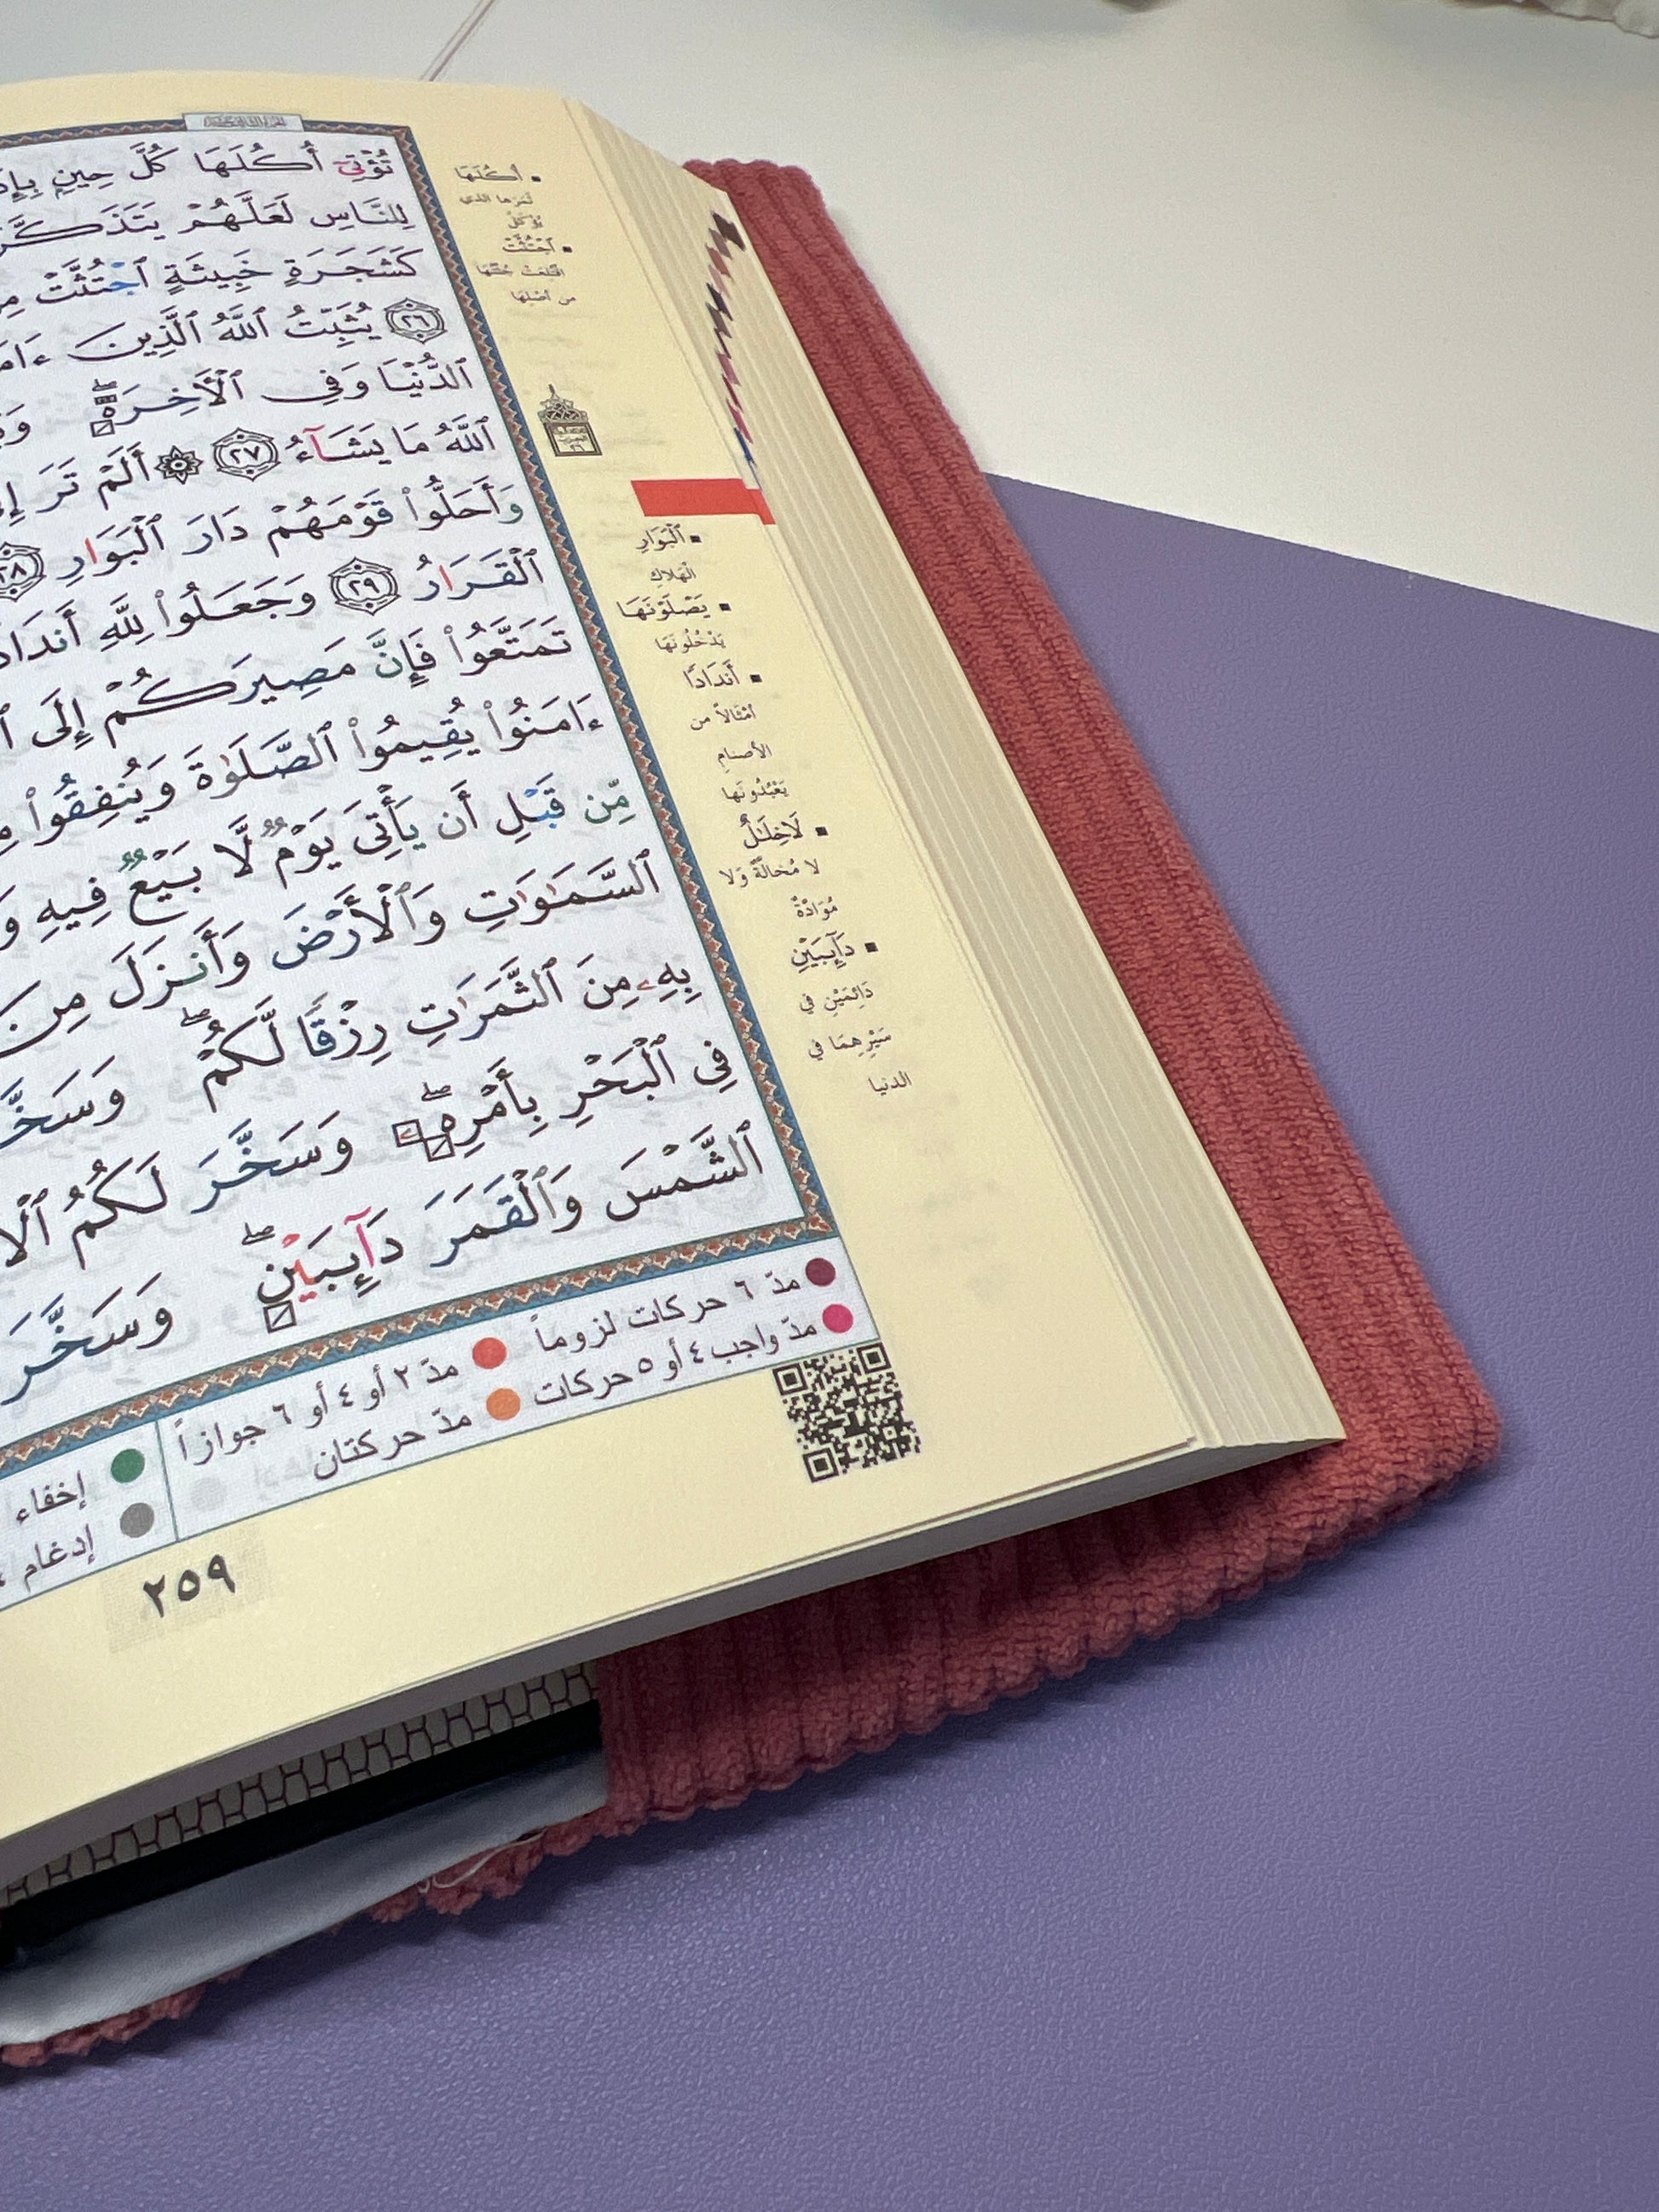 تُؤْتِىٓ أُكُلَهَا كُلَّ حِينٍۭ
لِلنَّاسِ لَعَلَّهُمْ
كَشَجَرَةٍ خَبِيثَةٍ ٱجْتُثَّتْ
٢٦ يُثَبِّتُ ٱللَّهُ ٱلَّذِينَ
ٱلدُّنْيَا وَفِى ٱلْأَخِرَةِ ۖ
ٱللَّهُ مَا يَشَآءُ ٢٧ ۞ أَلَمْ تَرَ
وَأَحَلُّوا۟ قَوْمَهُمْ دَارَ ٱلْبَوَارِ ٢٨
ٱلْقَرَارُ ٢٩ وَجَعَلُوا۟ لِلَّهِ
تَمَتَّعُوا۟ فَإِنَّ مَصِيرَكُمْ إِلَى
ءَامَنُوا۟ يُقِيمُوا۟ ٱلصَّلَوٰةَ وَيُنفِقُوا۟
مِّن قَبْلِ أَن يَأْتِىَ يَوْمٌ لَّا بَيْعٌ فِيهِ
ٱلسَّمَـٰوَٰتِ وَٱلْأَرْضَ وَأَنزَلَ مِنَ
بِهِۦ مِنَ ٱلثَّمَرَٰتِ رِزْقًا لَّكُمْ ۖ
فِى ٱلْبَحْرِ بِأَمْرِهِۦ ۖ وَسَخَّرَ لَكُمُ
ٱلشَّمْسَ وَٱلْقَمَرَ دَآئِبَيْنِ ۖ وَسَخَّرَ
▪ أُكُلَهَا
ثمرها الذي
يُؤكل
▪ ٱجْتُثَّتْ
اقتُلِعَتْ جُثَّتُها
من أصلِها
▪ ٱلْبَوَارِ
الْهَلاكِ
▪ يَصْلَوْنَهَا
يَدْخُلُونَها
▪ أَندَادًا
أمْثالاً من
الأصنامِ
يَعْبُدُونَها
▪ لَا خِلَـٰلٌ
لا مُخَالّةٌ وَلا
مُوَادّةٌ
▪ دَآئِبَيْنِ
دَائِمَيْنِ في
سَيْرِهِمَا في
الدنيا
مدّ ٦ حركات لزوماً
مدّ ٢ أو ٤ أو ٦ جوازاً
مدّ واجب ٤ أو ٥ حركات
مدّ حركتان
إخفاء
إدغام
٢٥٩